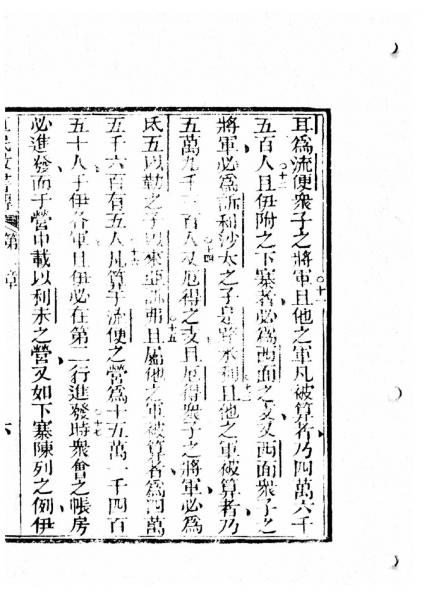 耳為流便衆子之將軍且他之軍凡被算者乃四萬六千
五百人且伊附之下寨者必為西面之支又西面衆子之
將軍必為訴利沙大之子是路米利且他之軍被算者乃
五萬九千三百人又厄得之支且厄得衆子之將軍必為
氐五以勒之子以來亞訴弗且屬他之軍被算者為四萬
五千六百有五人凡算于流便之營為十五萬一千四百
五十人于伊各軍且伊必在第二行進發時衆會之帳房
必進發而于營中載以利未之營又如下寨陳列之例伊
第 章 六